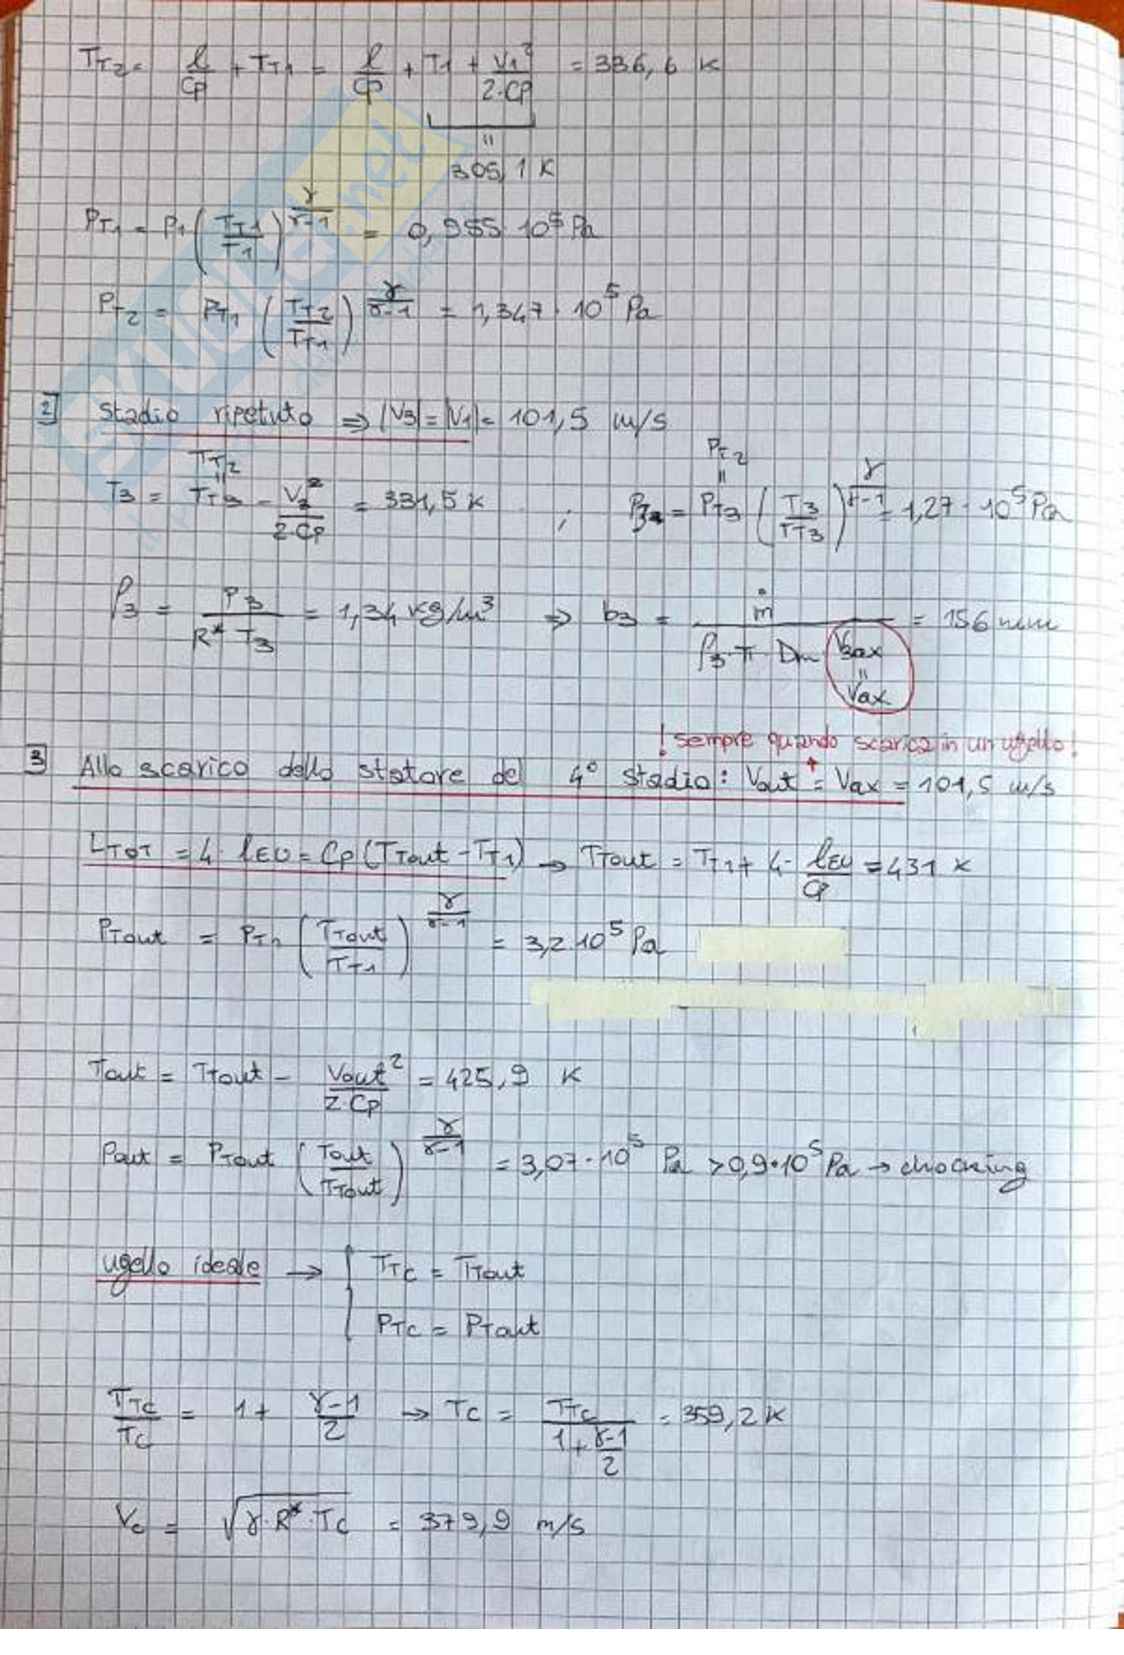 T_T2 = l/Cp + T_T1 = l/Cp + T1 + V1²/2·Cp = 336,6 K
= 305,1 K
P_T1 = P1 (T_T1/T1)^(γ/(γ-1)) = 0,955·10⁵ Pa
P_T2 = P_T1 (T_T2/T_T1)^(γ/(γ-1)) = 1,347·10⁵ Pa
2] Stadio ripetuto ⇒ |V3|=|V1|= 101,5 m/s
T_T2 P_T2
T3 = T_T3 - V3²/2·Cp = 331,5 K ; P3 = P_T3 (T3/T_T3)^(γ/(γ-1)) = 1,27·10⁵ Pa
ρ3 = P3/R*·T3 = 1,34 kg/m³ ⇒ b3 = ṁ/ρ3·π·Dm·V3ax = 156 mm
= Vax
! sempre quando scarica in un ugello!
3 Allo scarico dello statore del 4° stadio: Vout = Vax = 101,5 m/s
L_TOT = 4·l_EU = Cp (T_Tout - T_T1) → T_Tout = T_T1 + 4·l_EU/Cp = 431 K
P_Tout = P_T1 (T_Tout/T_T1)^(γ/(γ-1)) = 3,2·10⁵ Pa
Tout = T_Tout - Vout²/2·Cp = 425,9 K
Pout = P_Tout (Tout/T_Tout)^(γ/(γ-1)) = 3,07·10⁵ Pa > 0,9·10⁵ Pa → chocking
ugello ideale → { T_TC = T_Tout
P_TC = P_Tout
T_TC/T_C = 1 + (γ-1)/2 → T_C = T_TC/(1 + (γ-1)/2) = 359,2 K
V_C = √(γ·R*·T_C) = 379,9 m/s